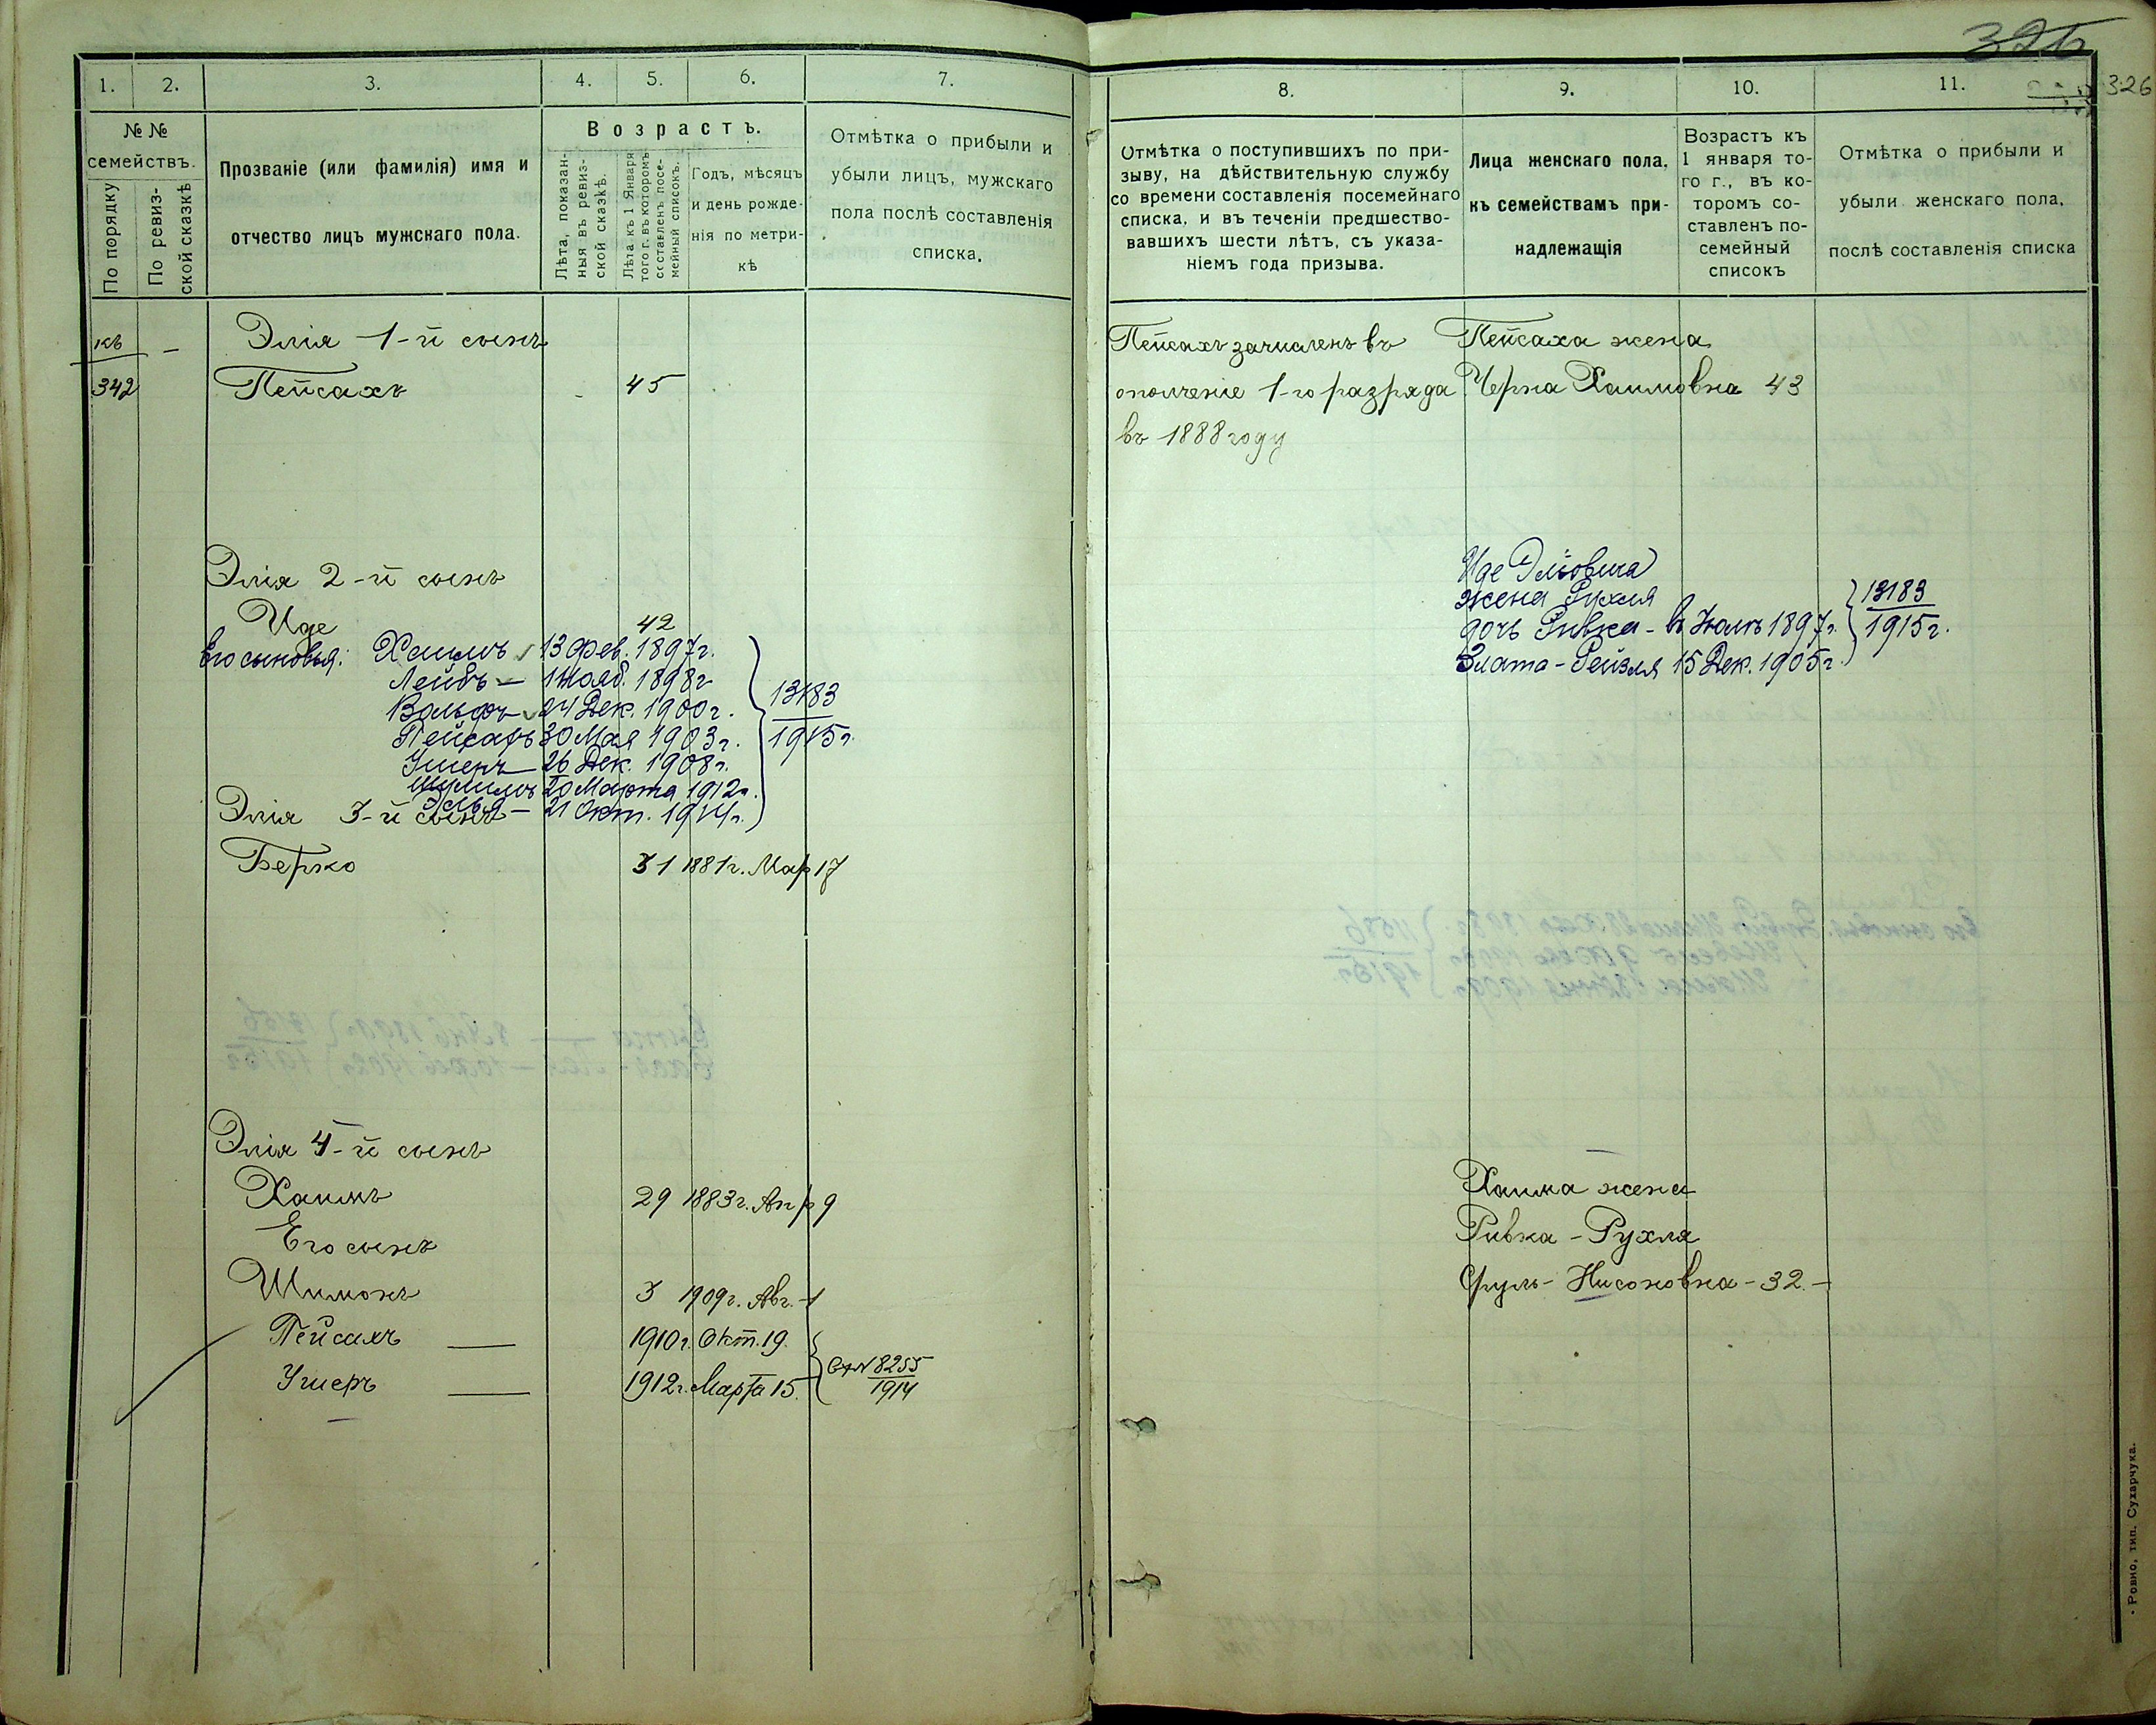 326
326
1.
2.
3.
4.
5.
6.
7.
№ №
семействъ.
По порядку
По ревиз-
ской сказкѣ
Прозваніе (или фамилія) имя и
отчество лицъ мужскаго пола.
Возрастъ.
Лѣта, показан-
ныя въ ревиз-
ской сказкѣ.
Лѣта къ 1 Января
того г. въ которомъ
составленъ посе-
мейный списокъ.
Годъ, мѣсяцъ
и день рожде-
нія по метри-
кѣ
Отмѣтка о прибыли и
убыли лицъ, мужскаго
пола послѣ составленія
списка.
къ
342
—
Элія 1-й сынъ
Пейсахъ 45
Элія 2-й сынъ
Иде 42
Его сыновья: Хаимъ 13 Фев. 1897г.
Лейбъ — 1 Нояб. 1898г.
Вольфъ 24 Дек. 1900г.
Пейсахъ 30 Мая 1903г.
Ушеръ — 26 Дек. 1908г.
20 Марта 1912г.
Элья — 21 Окт. 1914г.
13183
1915г.
Элія 3-й сынъ
Берко 31 1881г. Мар 17
Элія 4-й сынъ
Хаимъ 29 1883г. Апр 9
Его сынъ
Шимонъ 3 1909г. Авг. 1
Пейсахъ — 1910г. Окт. 19.
Ушеръ — 1912г. Марта 15.
№ 8255
1914
8.
9.
10.
11.
Отмѣтка о поступившихъ по при-
зыву, на дѣйствительную службу
со времени составленія посемейнаго
списка, и въ теченіи предшество-
вавшихъ шести лѣтъ, съ указа-
ніемъ года призыва.
Лица женскаго пола,
къ семействамъ при-
надлежащія
Возрастъ къ
1 января то-
го г., въ ко-
торомъ со-
ставленъ по-
семейный
списокъ
Отмѣтка о прибыли и
убыли женскаго пола,
послѣ составленія списка
Пейсахъ зачисленъ въ
ополченіе 1-го разряда
въ 1888 году
Пейсаха жена
Черна Хаимовна 43
Иде Эльовича
жена Рухля
дочь Ривка - въ 1897г.
Злата - Рейзля 15 Дек. 1905г.
13183
1915г.
Хаима жена
Ривка - Рухля
Нисоновна - 32 -
Ровно, тип. Сухарчука.